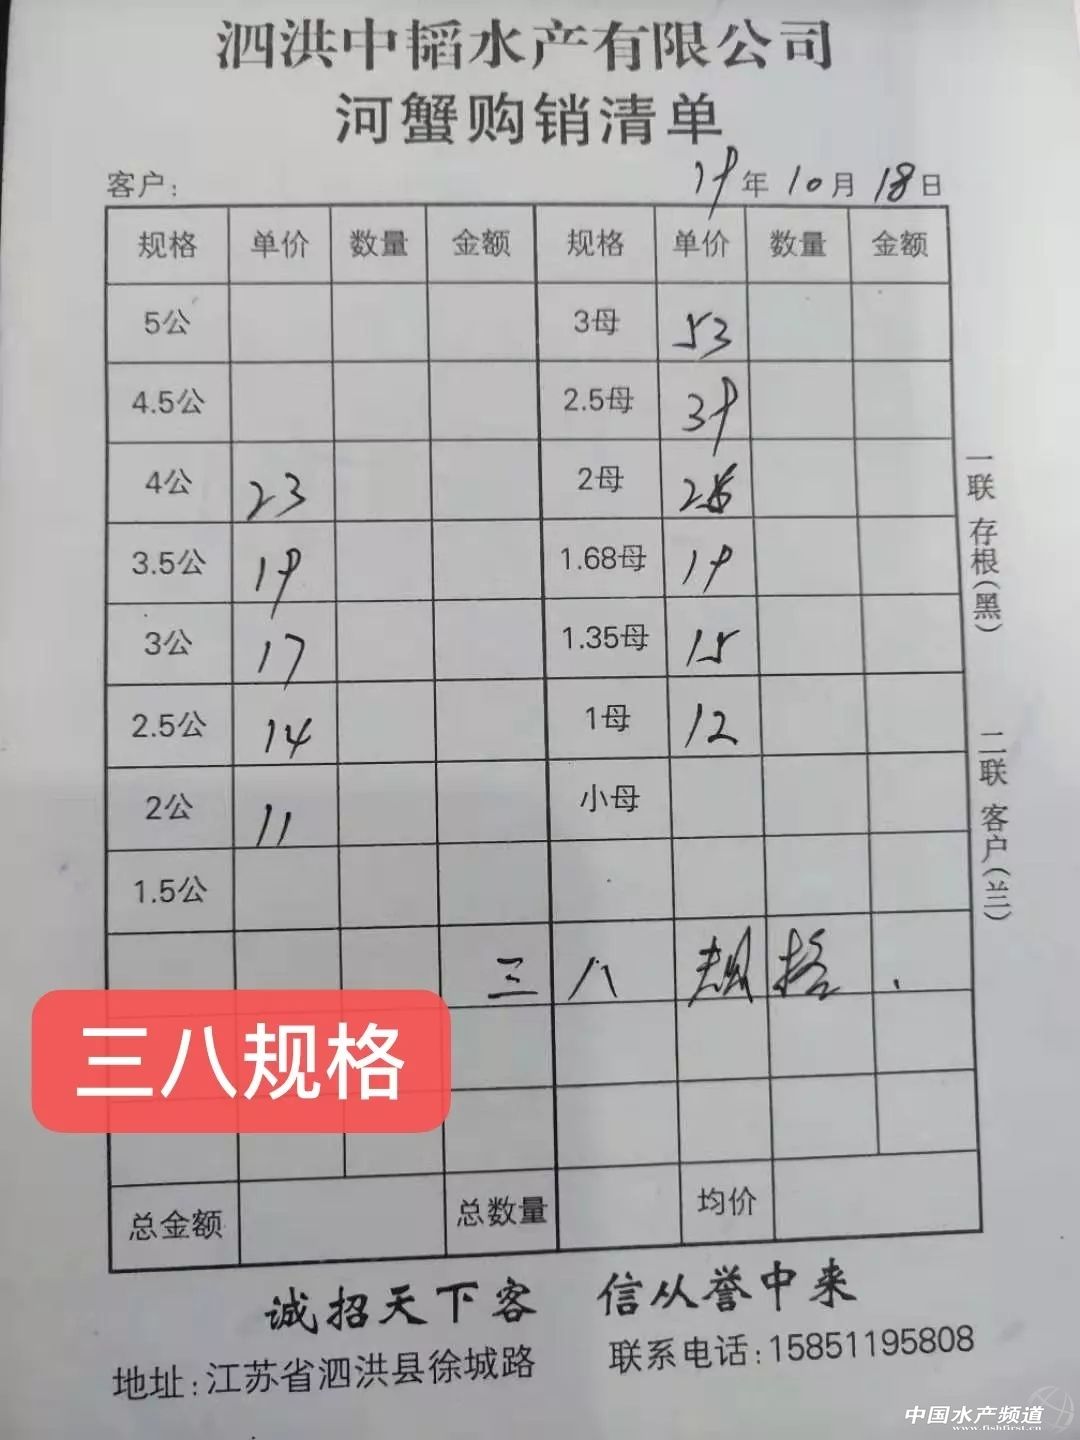 泗洪中韬水产有限公司
河蟹购销清单
客户: 19年10月18日
规格 单价 数量 金额 规格 单价 数量 金额
5公 3母 53
4.5公 2.5母 39
4公 23 2母
3.5公 19 1.68母 19
3公 17 1.35母 15
2.5公 14 1母 12
2公 11 小母
1.5公
三八规格.
三八规格
总金额 总数量 均价
诚招天下客 信从誉中来
地址:江苏省泗洪县徐城路 联系电话:15851195808
一联 存根(黑) 二联 客户(兰)
中国水产频道
www.fishfirst.cn